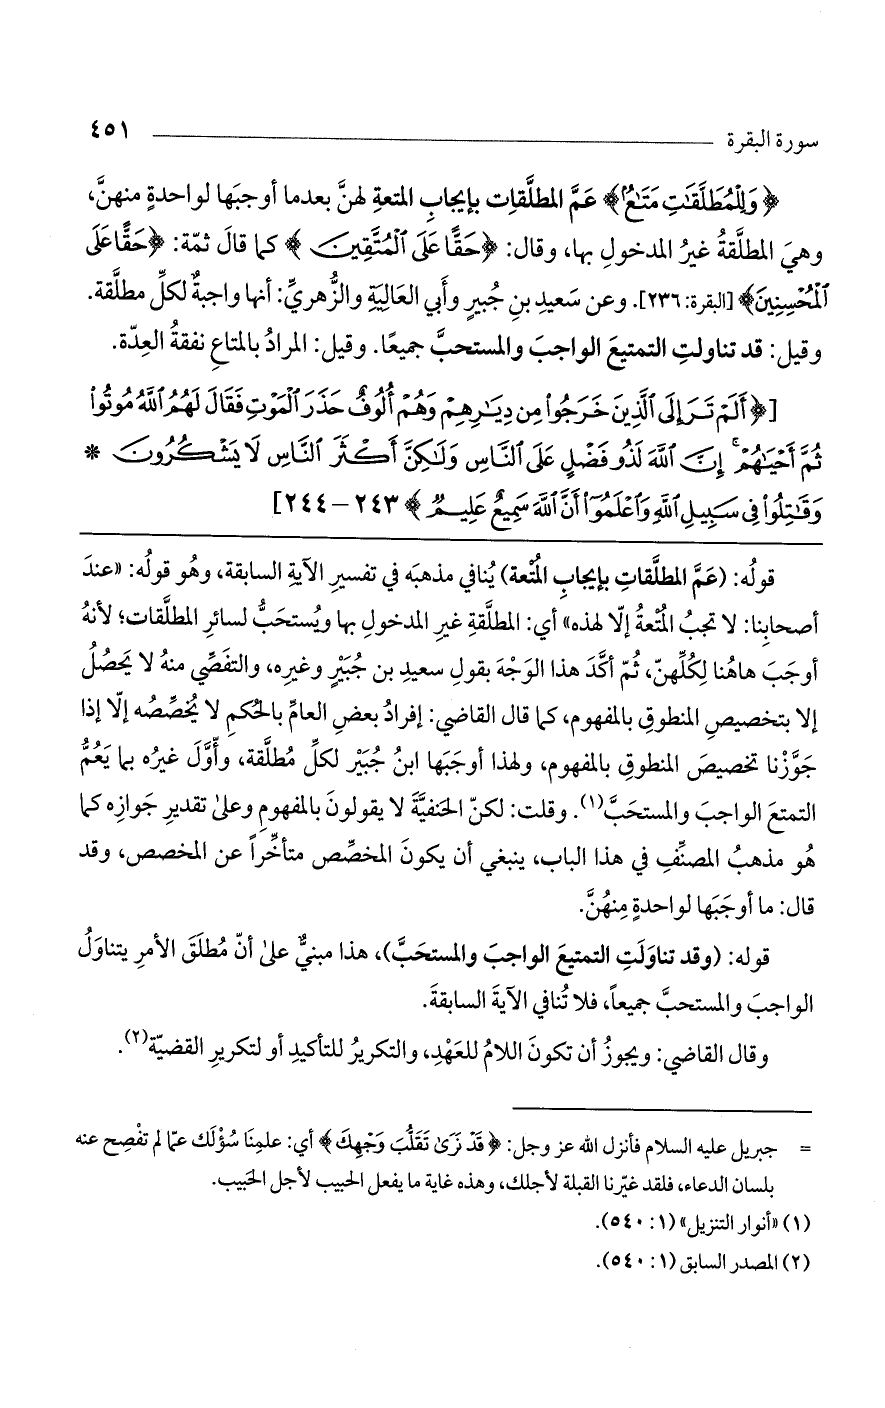 سورة البقرة ٤٥١
﴿وَلِلْمُطَلَّقَٰتِ مَتَٰعٌ﴾ عَمَّ المطلَّقاتِ بإيجابِ المتعةِ لهنَّ بعدما أوجبَها لواحدةٍ منهنَّ،
وهيَ المطلَّقةُ غيرُ المدخولِ بها، وقال: ﴿حَقًّا عَلَى ٱلْمُتَّقِينَ﴾ كما قالَ ثمّة: ﴿حَقًّا عَلَى
ٱلْمُحْسِنِينَ﴾ [البقرة: ٢٣٦]. وعن سَعيدِ بنِ جُبيرٍ وأَبي العَاليَةِ والزُّهريِّ: أنها واجبةٌ لكلِّ مطلقة.
وقيل: قد تناولتِ التمتيعَ الواجبَ والمستحبَّ جميعًا. وقيل: المرادُ بالمتاعِ نفقةُ العِدّة.
[﴿أَلَمْ تَرَ إِلَى ٱلَّذِينَ خَرَجُوا۟ مِن دِيَٰرِهِمْ وَهُمْ أُلُوفٌ حَذَرَ ٱلْمَوْتِ فَقَالَ لَهُمُ ٱللَّهُ مُوتُوا۟
ثُمَّ أَحْيَٰهُمْ ۚ إِنَّ ٱللَّهَ لَذُو فَضْلٍ عَلَى ٱلنَّاسِ وَلَٰكِنَّ أَكْثَرَ ٱلنَّاسِ لَا يَشْكُرُونَ *
وَقَٰتِلُوا۟ فِى سَبِيلِ ٱللَّهِ وَٱعْلَمُوٓا۟ أَنَّ ٱللَّهَ سَمِيعٌ عَلِيمٌ﴾ ٢٤٣ – ٢٤٤]
قولُه: (عَمَّ المطلَّقاتِ بإيجابِ المُتْعة) يُنافي مذهبَه في تفسيرِ الآيةِ السابقة، وهُو قولُه: «عندَ
أصحابِنا: لا تجبُ المُتْعةُ إلّا لهذه» أي: المطلَّقةِ غيرِ المدخولِ بها ويُستحَبُّ لسائرِ المطلَّقات؛ لأنهُ
أوجَبَ هاهُنا لِكُلِّهنّ، ثُمّ أكَّدَ هذا الوَجْهَ بقولِ سعيدِ بن جُبَيْرٍ وغيرِه، والتفَصِّي منهُ لا يَحصُلُ
إلا بتخصيصِ المنطوقِ بالمفهوم، كما قال القاضي: إفرادُ بعضِ العامِّ بالحُكمِ لا يُخصِّصُه إلّا إذا
جَوَّزْنا تخصيصَ المنطوقِ بالمفهوم، ولهذا أوجَبَها ابنُ جُبَيْر لكلِّ مُطلَّقة، وأَوَّلَ غيرُه بما يَعُمُّ
التمتعَ الواجبَ والمستحَبَّ(١). وقلت: لكنّ الحَنفيَّةَ لا يقولونَ بالمفهومِ وعلىٰ تقديرِ جَوازِه كما
هُو مذهبُ المصنِّفِ في هذا الباب، ينبغي أن يكونَ المخصِّص متأخِّراً عن المخصص، وقد
قال: ما أوجَبَها لواحدةٍ مِنهُنَّ.
قوله: (وقد تناوَلَتِ التمتيعَ الواجبَ والمستحَبَّ)، هذا مبنيٌّ علىٰ أنّ مُطلَقَ الأمرِ يتناوَلُ
الواجبَ والمستحبَّ جميعاً، فلا تُنافي الآيةَ السابقةَ.
وقال القاضي: ويجوزُ أن تكونَ اللامُ للعَهْدِ، والتكريرُ للتأكيدِ أو لتكريرِ القضيّة(٢).
= جبريل عليه السلام فأنزل الله عز وجل: ﴿قَدْ نَرَىٰ تَقَلُّبَ وَجْهِكَ﴾ أي: علمِنَا سُؤْلَك عمّا لم تفْصِح عنه
بلسان الدعاء، فلقد غيّرنا القبلة لأجلك، وهذه غاية ما يفعل الحبيب لأجل الحَبيب.
(١) «أنوار التنزيل» (١: ٥٤٠).
(٢) المصدر السابق (١: ٥٤٠).